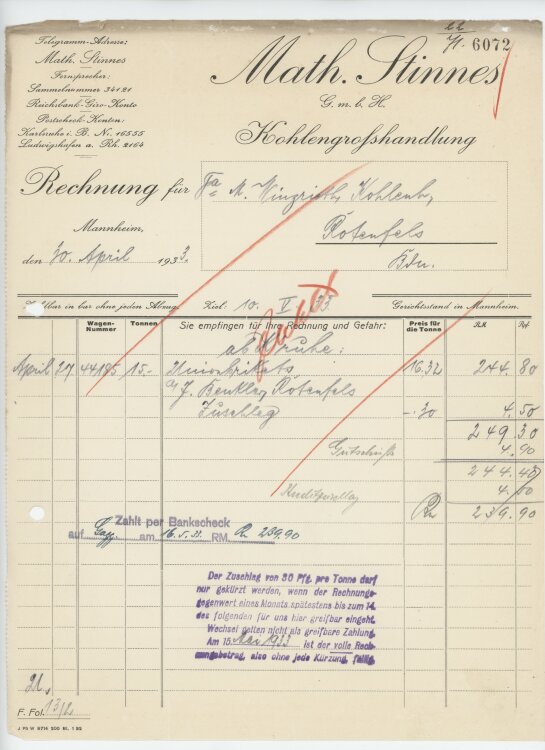 Telegramm-Adresse:
Math. Stinnes
Fernsprecher:
Sammelnummer 34121
Reichsbank-Giro-Konto
Postscheck-Konten:
Karlsruhe i. B. Nr. 16555
Ludwigshafen a. Rh. 2164
6072
Math. Stinnes
G. m. b. H.
Kohlengroßhandlung
Rechnung für Fa M. Kohlenh.
Rotenfels
Bdn.
Mannheim,
den 30. April 1933.
Zahlbar in bar ohne jeden Abzug. Ziel: 10. V 33. Gerichtsstand in Mannheim.
Wagen-Nummer Tonnen Sie empfingen für Ihre Rechnung und Gefahr: Preis für die Tonne RM. Pf.
ab K'ruhe:
April 27 44185 15.- Unionbrikets 16.32 244.80
J. Rotenfels
Zuschlag -.30 4.50
249.30
Gutschrift 4.90
244.40
4.50
Rm 239.90
Zahlt per Bankscheck
auf Gagg. am 16.5.33. RM. 239.90
Der Zuschlag von 30 Pfg. pro Tonne darf
nur gekürzt werden, wenn der Rechnungs-
gegenwert eines Monats spätestens bis zum 14.
des folgenden für uns hier greifbar eingeht.
Wechsel gelten nicht als greifbare Zahlung.
Am 15. Mai 1933 ist der volle Rech-
nungsbetrag, also ohne jede Kürzung, fällig.
F. Fol.